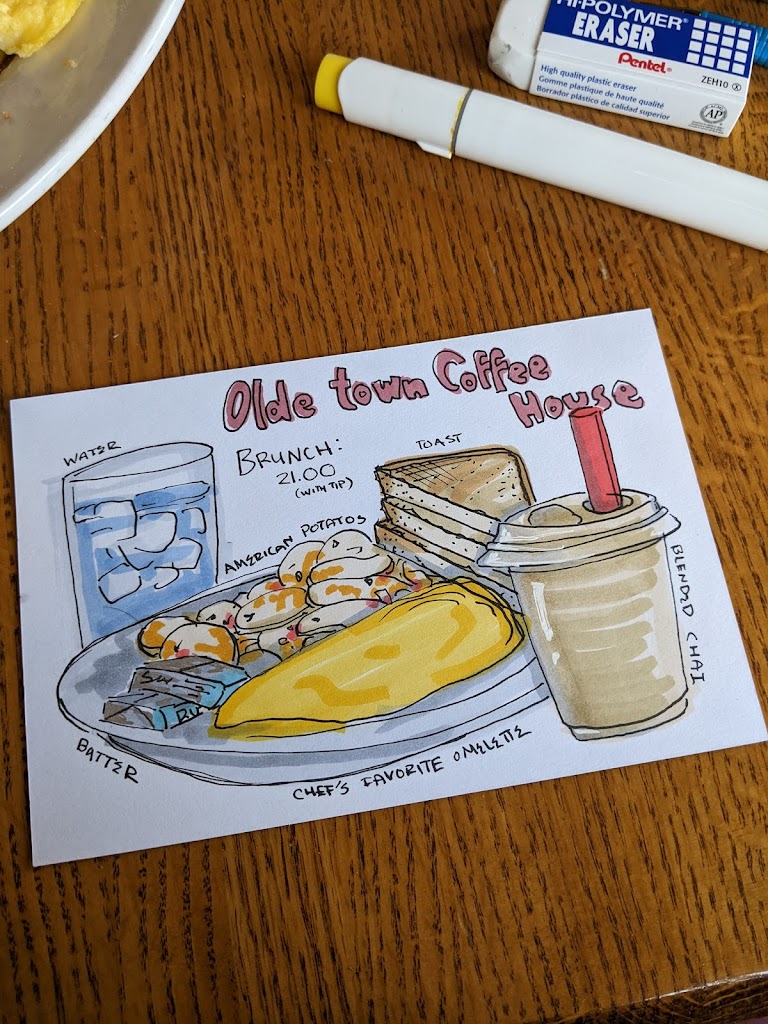 HI-POLYMER®
ERASER
Pentel®
ZEH10
High quality plastic eraser
Gomme plastique de haute qualité
Borrador plástico de calidad superior
AP
Olde town Coffee
House
WATER
BRUNCH:
21.00
(WITH TIP)
TOAST
AMERICAN POTATOS
BLENDED CHAI
BATTER
CHEF'S FAVORITE OMELETTE